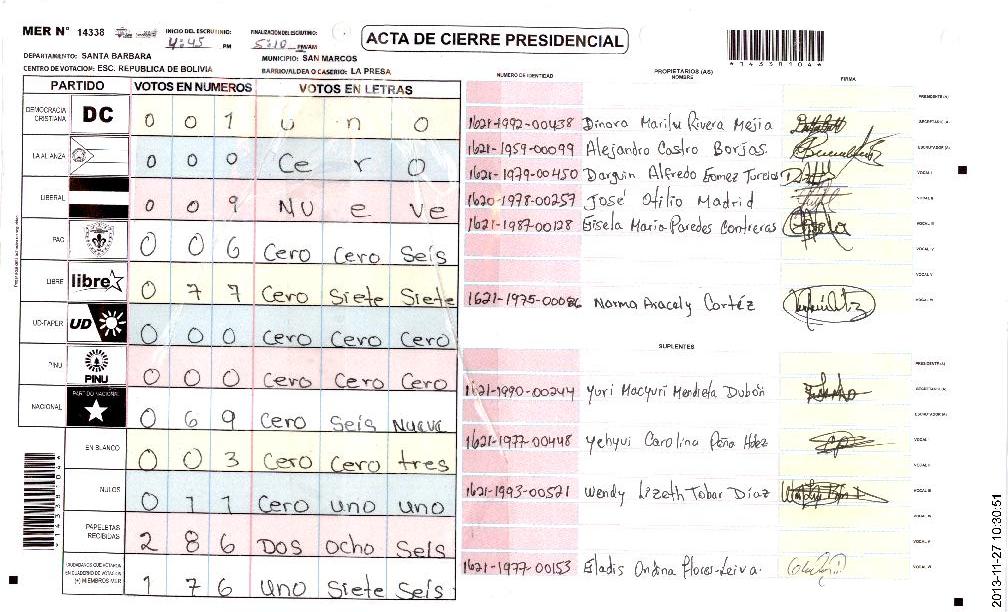 MER N° 14338
INICIO DEL ESCRUTINIO: 4:45 PM
FINALIZACION DEL ESCRUTINIO: 5:10 PM/AM
ACTA DE CIERRE PRESIDENCIAL
*143381044*
DEPARTAMENTO: SANTA BARBARA
MUNICIPIO: SAN MARCOS
CENTRO DE VOTACION: ESC. REPUBLICA DE BOLIVIA
BARRIO/ALDEA O CASERIO: LA PRESA
PARTIDO VOTOS EN NUMEROS VOTOS EN LETRAS
DEMOCRACIA CRISTIANA DC 0 0 1 u n o
LA ALIANZA 0 0 0 Ce r o
LIBERAL 0 0 9 NU e ve
PAC 0 0 6 Cero Cero Seis
LIBRE libre 0 7 7 Cero Siete Siete
UD-FAPER UD 0 0 0 Cero Cero Cero
PINU PINU 0 0 0 Cero Cero Cero
NACIONAL PARTIDO NACIONAL 0 6 9 Cero Seis Nueve
EN BLANCO 0 0 3 Cero Cero tres
NULOS 0 1 1 Cero uno uno
PAPELETAS RECIBIDAS 2 8 6 DOS ocho Seis
CIUDADANOS QUE VOTARON EN CUADERNO DE VOTACION (+) MIEMBROS MER 1 7 6 Uno Siete Seis
NUMERO DE IDENTIDAD PROPIETARIOS (AS) NOMBRE FIRMA
PRESIDENTE (A)
1621-1992-00438 Dinora Marilu Rivera Mejia SECRETARIO (A)
1621-1959-00099 Alejandro Castro Borjas ESCRUTADOR (A)
1621-1979-00450 Darguin Alfredo Gomez Turcios VOCAL I
1620-1978-00257 José Otilio Madrid VOCAL II
1621-1987-00128 Gisela Maria Paredes Contreras VOCAL III
VOCAL IV
VOCAL V
1621-1975-00086 Norma Aracely Cortéz VOCAL VI
SUPLENTES
PRESIDENTE (A)
1621-1990-00244 Yuri Macyuri Mendieta Dubón SECRETARIO (A)
ESCRUTADOR (A)
1621-1977-00448 Yehyui Carolina Peña Hdez VOCAL I
VOCAL II
1621-1993-00521 Wendy Lizeth Tobar Díaz VOCAL III
VOCAL IV
VOCAL V
1621-1977-00153 Eladis Ondina Flores-Leiva. VOCAL VI
2013-11-27 10:30:51